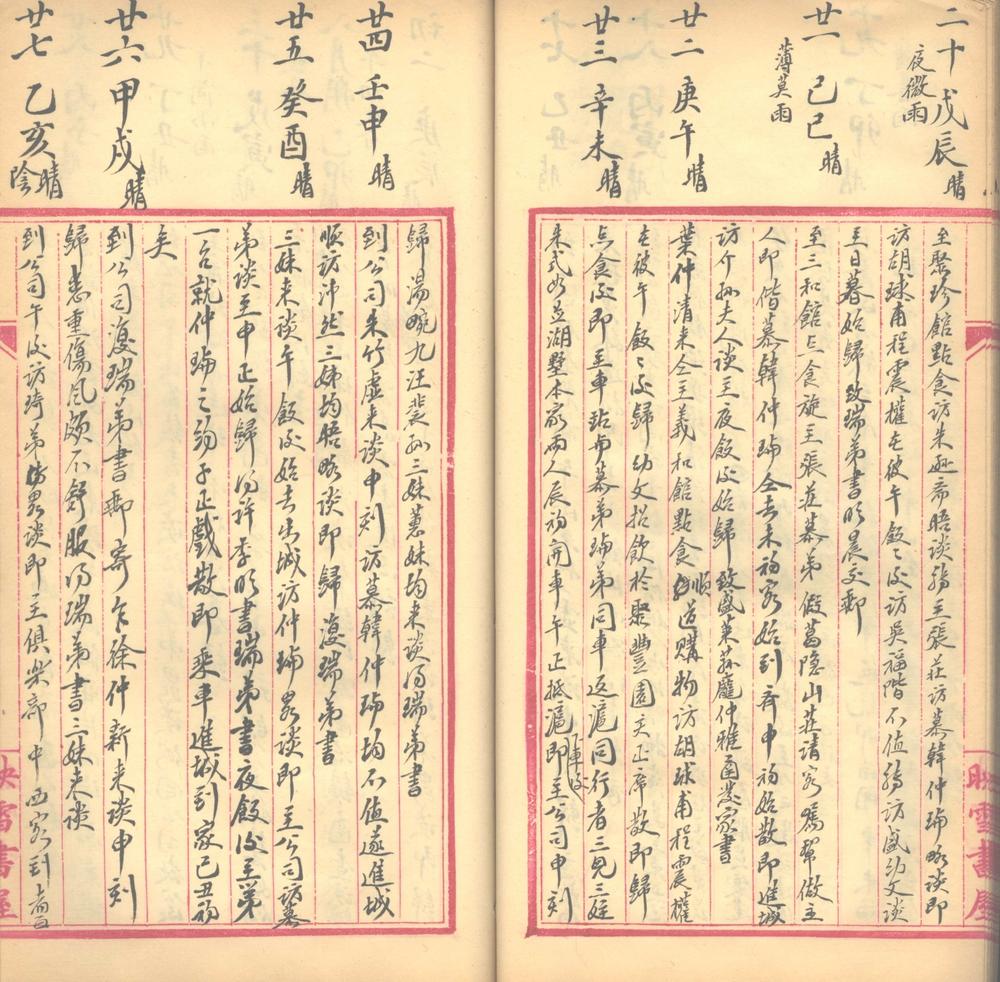 二十 戊辰 晴
夜微雨
至聚珍館點食訪朱遜齋晤談旋至張莊訪慕韓仲瑜略談即
訪胡球甫程震權在彼午飯飯後訪吳福階不值旋訪盛幼文談
至日暮始歸致瑞弟書明晨交郵
廿一 己巳 晴
薄莫雨
至三和館點食旋至張莊慕弟假葛隱山莊請客囑輩做主
人即偕慕韓仲瑜仝去未初客始到齊申初始散即進城
訪介孫夫人談至夜飯後始歸 致盛萊蓀龐仲雅函發家書
廿二 庚午 晴
葉仲清來仝至義和館點食順道購物訪胡球甫程震權
在彼午飯飯後歸幼文招飲於聚豐園亥正席散即歸
廿三 辛未 晴
點食後即至車站與慕弟瑜弟同車返滬同行者三兄三嫂
朱式如並湖墅本家兩人辰初開車午正抵滬下車後即至公司申刻
歸湯畹九汪裴孫三妹蕙妹均來談得瑞弟書
廿四 壬申 晴
到公司朱竹虛來談申刻訪慕韓仲瑜均不值遂進城
順訪沛然三姊均晤略談即歸復瑞弟書
廿五 癸酉 晴
三妹來談午飯後始去出城訪仲瑜略談即至公司訪慕
弟談至申正始歸得許季明書瑞弟書夜飯後至第
一台就仲瑜之約子正戲散即乘車進城到家已丑初
矣
廿六 甲戌 晴
到公司復瑞弟書郵寄乍徐仲新來談申刻
歸患重傷風頗不舒服得瑞弟書三妹來談
廿七 乙亥 晴
陰
到公司午後訪琦弟略談即至俱樂部中西客到者
映雪書屋
映雪書屋